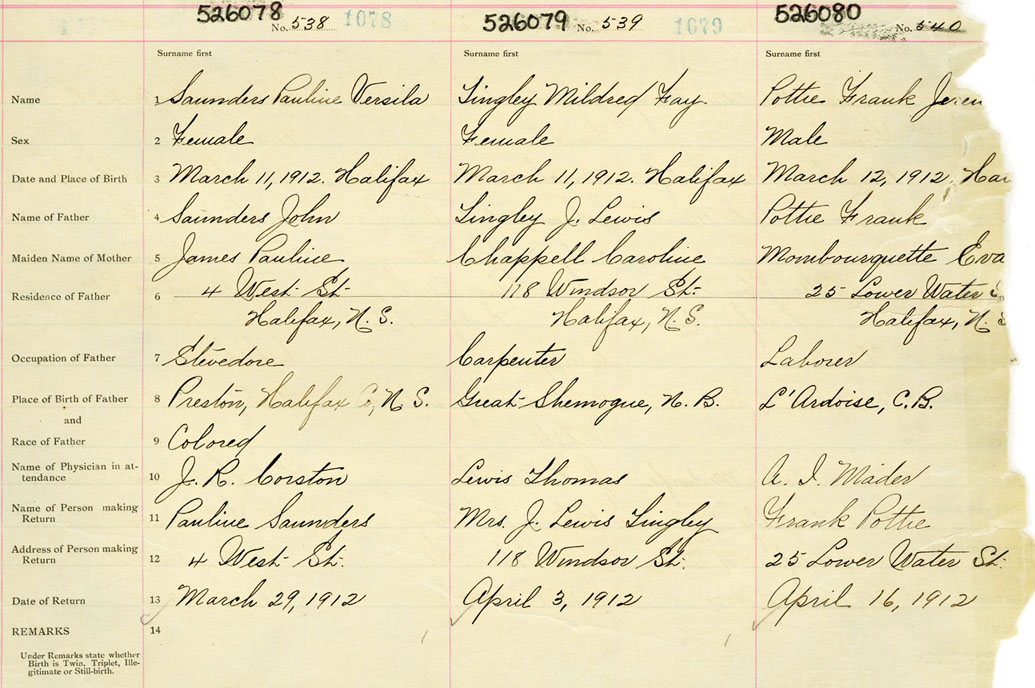 526078 526079 526080
No. 538 1078 No. 539 1079 No. 540
Surname first Surname first Surname first
Name 1 Saunders Pauline Versila Lingley Mildred Fay Pottie Frank
Sex 2 Female Female Male
Date and Place of Birth 3 March 11, 1912. Halifax March 11, 1912. Halifax March 12, 1912.
Name of Father 4 Saunders John Lingley J. Lewis Pottie Frank
Maiden Name of Mother 5 James Pauline Chappell Caroline Mombourquette Eva
Residence of Father 6 4 West St. 118 Windsor St. 25 Lower Water
Halifax, N. S. Halifax, N. S. Halifax, N. S
Occupation of Father 7 Stevedore Carpenter Laborer
Place of Birth of Father 8 Preston, Halifax Co, N. S. Great Shemogue, N. B. L'Ardoise, C. B.
and
Race of Father 9 Colored
Name of Physician in at-
tendance 10 J. R. Corston Lewis Thomas A. I. Mader
Name of Person making
Return 11 Pauline Saunders Mrs. J. Lewis Lingley Frank Pottie
Address of Person making
Return 12 4 West St. 118 Windsor St. 25 Lower Water St.
Date of Return 13 March 29, 1912 April 3, 1912 April 16, 1912
REMARKS 14
Under Remarks state whether
Birth is Twin, Triplet, Ille-
gitimate or Still-birth.